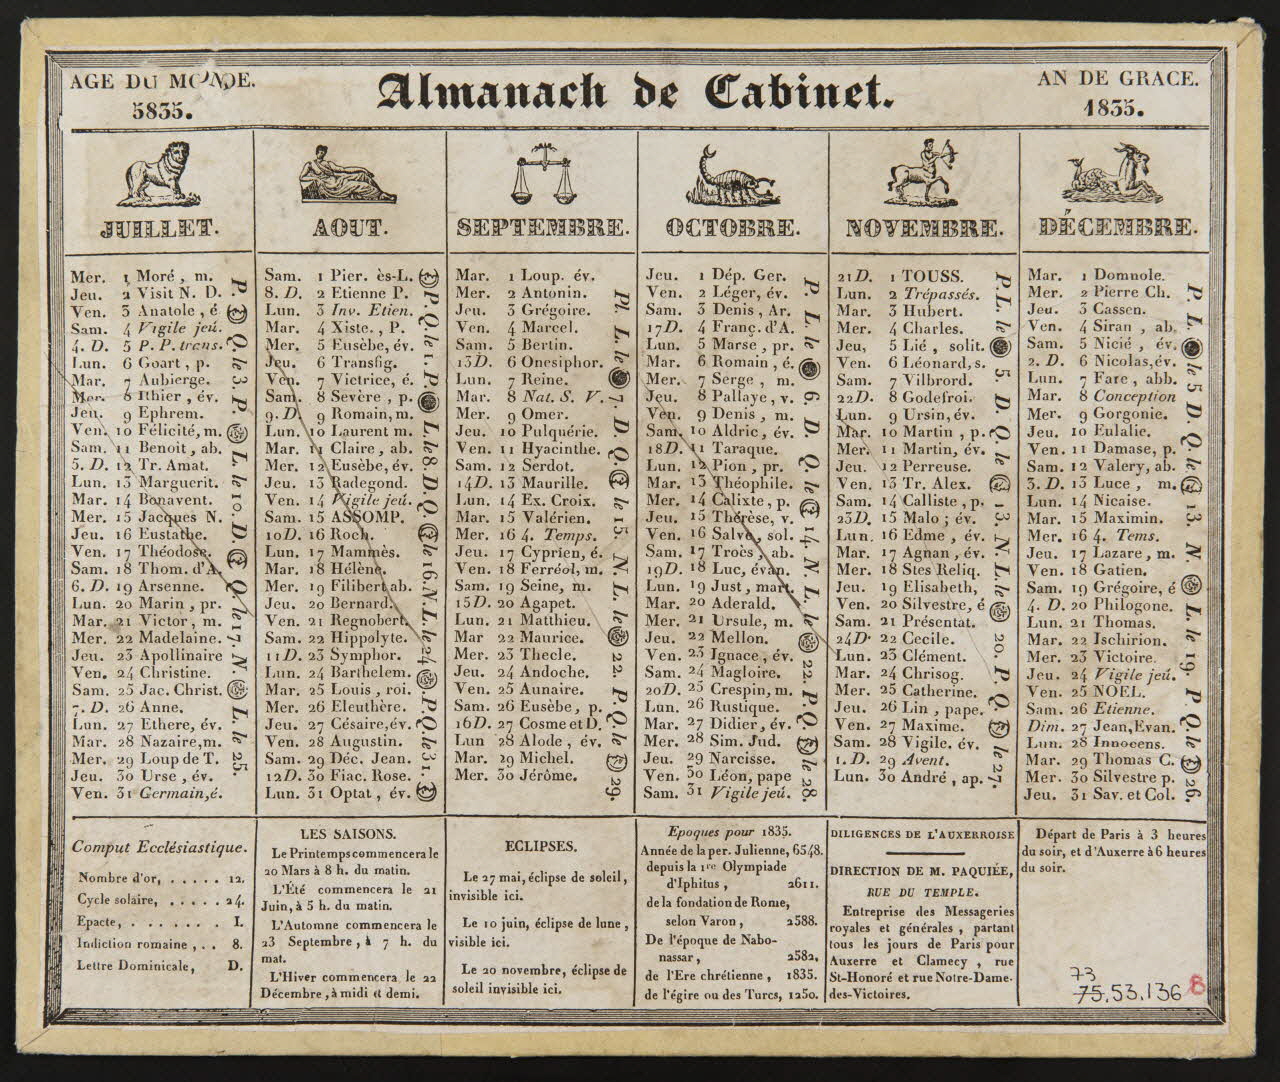 AGE DU MONDE.
5835.
Almanach de Cabinet.
AN DE GRACE.
1835.
JUILLET.
Mer. 1 Moré, m.
Jeu. 2 Visit N. D.
Ven. 3 Anatole, é
Sam. 4 Vigile jeú.
4. D. 5 P. P. trens.
Lun. 6 Goart, p.
Mar. 7 Aubierge.
Mer. 8 Ithier, év.
Jeu. 9 Ephrem.
Ven. 10 Félicité, m.
Sam. 11 Benoit, ab.
5. D. 12 Tr. Amat.
Lun. 13 Marguerit.
Mar. 14 Bonavent.
Mer. 15 Jacques N.
Jeu. 16 Eustathe.
Ven. 17 Théodose.
Sam. 18 Thom. d'A.
6. D. 19 Arsenne.
Lun. 20 Marin, pr.
Mar. 21 Victor, m.
Mer. 22 Madelaine.
Jeu. 23 Apollinaire
Ven. 24 Christine.
Sam. 25 Jac. Christ.
7. D. 26 Anne.
Lun. 27 Ethere, év.
Mar. 28 Nazaire, m.
Mer. 29 Loup de T.
Jeu. 30 Urse, év.
Ven. 31 Germain, é.
P. Q. le 3. P. L. le 10. D. Q. le 17. N. L. le 25.
AOUT.
Sam. 1 Pier. ès-L.
8. D. 2 Etienne P.
Lun. 3 Inv. Etien.
Mar. 4 Xiste., P.
Mer. 5 Eusèbe, év.
Jeu. 6 Transfig.
Ven. 7 Victrice, é.
Sam. 8 Sevère, p.
9. D. 9 Romain, m.
Lun. 10 Laurent m.
Mar. 11 Claire, ab.
Mer. 12 Eusèbe, év.
Jeu. 13 Radegond.
Ven. 14 Vigile jeú.
Sam. 15 ASSOMP.
10 D. 16 Roch.
Lun. 17 Mammès.
Mar. 18 Hélène.
Mer. 19 Filibert ab.
Jeu. 20 Bernard.
Ven. 21 Regnobert
Sam. 22 Hippolyte.
11 D. 23 Symphor.
Lun. 24 Barthelem.
Mar. 25 Louis, roi.
Mer. 26 Eleuthère.
Jeu. 27 Césaire, év.
Ven. 28 Augustin.
Sam. 29 Déc. Jean.
12 D. 30 Fiac. Rose.
Lun. 31 Optat, év.
P. Q. le 1. P. L. le 8. D. Q. le 16. N. L. le 24. P. Q. le 31.
SEPTEMBRE.
Mar. 1 Loup. év.
Mer. 2 Antonin.
Jeu. 3 Grégoire.
Ven. 4 Marcel.
Sam. 5 Bertin.
13 D. 6 Onesiphor.
Lun. 7 Reine.
Mar. 8 Nat. S. V.
Mer. 9 Omer.
Jeu. 10 Pulquérie.
Ven. 11 Hyacinthe.
Sam. 12 Serdot.
14 D. 13 Maurille.
Lun. 14 Ex. Croix.
Mar. 15 Valérien.
Mer. 16 4. Temps.
Jeu. 17 Cyprien, é.
Ven. 18 Ferréol, m.
Sam. 19 Seine, m.
15 D. 20 Agapet.
Lun. 21 Matthieu.
Mar 22 Maurice.
Mer. 23 Thecle.
Jeu. 24 Andoche.
Ven. 25 Aunaire.
Sam. 26 Eusèbe, p.
16 D. 27 Cosme et D.
Lun 28 Alode, év.
Mar. 29 Michel.
Mer. 30 Jérôme.
Pl. L. le 7. D. Q. le 15. N. L. le 22. P. Q. le 29.
OCTOBRE.
Jeu. 1 Dép. Ger.
Ven. 2 Léger, év.
Sam. 3 Denis, Ar.
17 D. 4 Franç. d'A.
Lun. 5 Marse, pr.
Mar. 6 Romain, é.
Mer. 7 Serge, m.
Jeu. 8 Pallaye, v.
Ven. 9 Denis, m.
Sam. 10 Aldric, év.
18 D. 11 Taraque.
Lun. 12 Pion, pr.
Mar. 13 Théophile.
Mer. 14 Calixte, p.
Jeu. 15 Thérèse, v.
Ven. 16 Salve, sol.
Sam. 17 Troès, ab.
19 D. 18 Luc, évan.
Lun. 19 Just, mart.
Mar. 20 Aderald.
Mer. 21 Ursule, m.
Jeu. 22 Mellon.
Ven. 23 Ignace, év.
Sam. 24 Magloire.
20 D. 25 Crespin, m.
Lun. 26 Rustique.
Mar. 27 Didier, év.
Mer. 28 Sim. Jud.
Jeu. 29 Narcisse.
Ven. 30 Léon, pape
Sam. 31 Vigile jeú.
P. L. le 6. D. Q. le 14. N. L. le 22. P. Q. le 28.
NOVEMBRE.
21 D. 1 TOUSS.
Lun. 2 Trépassés.
Mar. 3 Hubert.
Mer. 4 Charles.
Jeu, 5 Lié, solit.
Ven. 6 Léonard, s.
Sam. 7 Vilbrord.
22 D. 8 Godefroi.
Lun. 9 Ursin, év.
Mar. 10 Martin, p.
Mer. 11 Martin, év.
Jeu. 12 Perreuse.
Ven. 13 Tr. Alex.
Sam. 14 Calliste, p.
23 D. 15 Malo; év.
Lun. 16 Edme, év.
Mar. 17 Agnan, év.
Mer. 18 Stes Reliq.
Jeu. 19 Elisabeth,
Ven. 20 Silvestre, é
Sam. 21 Présentat.
24 D. 22 Cecile.
Lun. 23 Clément.
Mar. 24 Chrisog.
Mer. 25 Catherine.
Jeu. 26 Lin, pape.
Ven. 27 Maxime.
Sam. 28 Vigile. év.
1. D. 29 Avent.
Lun. 30 André, ap.
P. L. le 5. D. Q. le 13. N. L. le 20. P. Q. le 27.
DÉCEMBRE.
Mar. 1 Domnole.
Mer. 2 Pierre Ch.
Jeu. 3 Cassen.
Ven. 4 Siran, ab.
Sam. 5 Nicié, év.
2. D. 6 Nicolas, év.
Lun. 7 Fare, abb.
Mar. 8 Conception
Mer. 9 Gorgonie.
Jeu. 10 Eulalie.
Ven. 11 Damase, p.
Sam. 12 Valery, ab.
3. D. 13 Luce, m.
Lun. 14 Nicaise.
Mar. 15 Maximin.
Mer. 16 4. Tems.
Jeu. 17 Lazare, m.
Ven. 18 Gatien.
Sam. 19 Grégoire, é
4. D. 20 Philogone.
Lun. 21 Thomas.
Mar. 22 Ischirion.
Mer. 23 Victoire.
Jeu. 24 Vigile jeú.
Ven. 25 NOEL.
Sam. 26 Etienne.
Dim. 27 Jean, Evan.
Lun. 28 Innocens.
Mar. 29 Thomas C.
Mer. 30 Silvestre p.
Jeu. 31 Sav. et Col.
P. L. le 5 D. Q. le 13. N. L. le 19. P. Q. le 26.
Comput Ecclésiastique.
Nombre d'or, . . . . . 12.
Cycle solaire, . . . . . 24.
Epacte, . . . . . . . I.
Indiction romaine, . . 8.
Lettre Dominicale, D.
LES SAISONS.
Le Printemps commencera le
20 Mars à 8 h. du matin.
L'Été commencera le 21
Juin, à 5 h. du matin.
L'Automne commencera le
23 Septembre, à 7 h. du
mat.
L'Hiver commencera le 22
Décembre, à midi et demi.
ECLIPSES.
Le 27 mai, éclipse de soleil,
invisible ici.
Le 10 juin, éclipse de lune,
visible ici.
Le 20 novembre, éclipse de
soleil invisible ici.
Epoques pour 1835.
Année de la per. Julienne, 6548.
depuis la 1re Olympiade
d'Iphitus, 2611.
de la fondation de Rome,
selon Varon, 2588.
De l'époque de Nabo-
nassar, 2582.
de l'Ere chrétienne, 1835.
de l'égire ou des Turcs, 1250.
DILIGENCES DE L'AUXERROISE
DIRECTION DE M. PAQUIÉE,
RUE DU TEMPLE.
Entreprise des Messageries
royales et générales, partant
tous les jours de Paris pour
Auxerre et Clamecy, rue
St-Honoré et rue Notre-Dame-
des-Victoires.
Départ de Paris à 3 heures
du soir, et d'Auxerre à 6 heures
du soir.
73
75.53.136 B